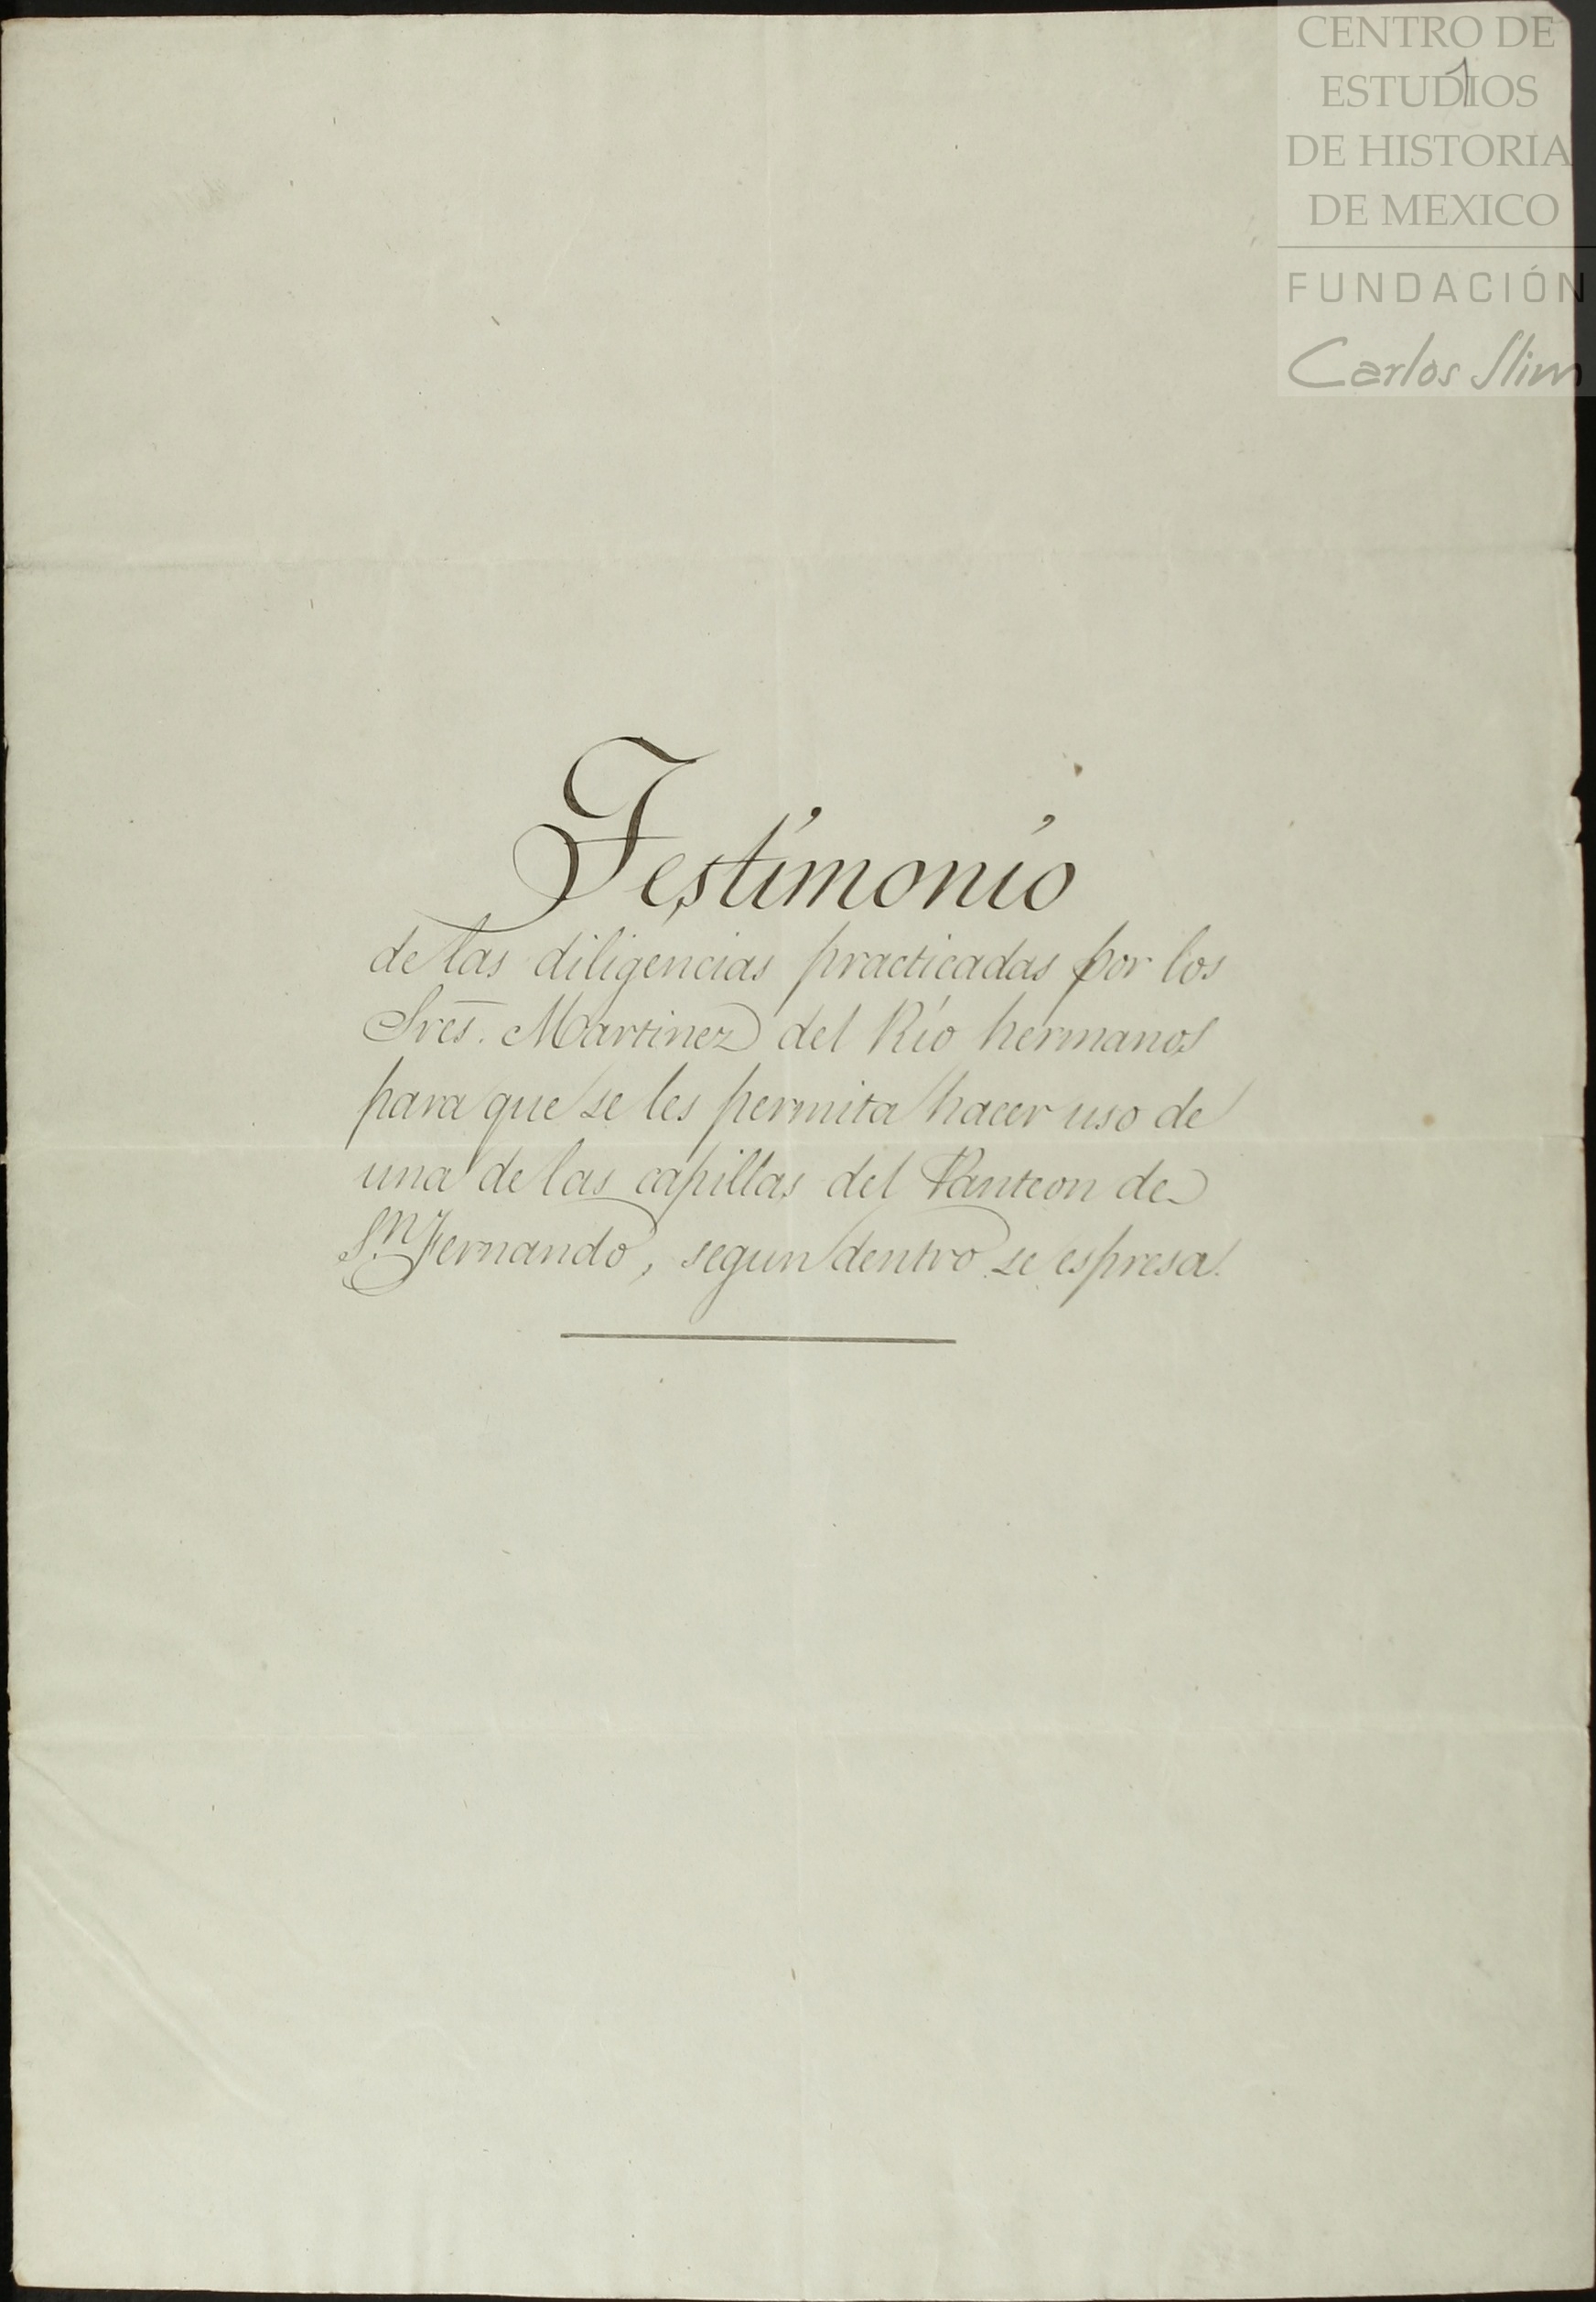 CENTRO DE
ESTUDIOS
DE HISTORIA
DE MEXICO
FUNDACIÓN
Carlos Slim
1
Testimonio
de las diligencias practicadas por los
Sres. Martinez del Río hermanos
para que se les permita hacer uso de
una de las capillas del Panteon de
Sn. Fernando, segun dentro se espresa.